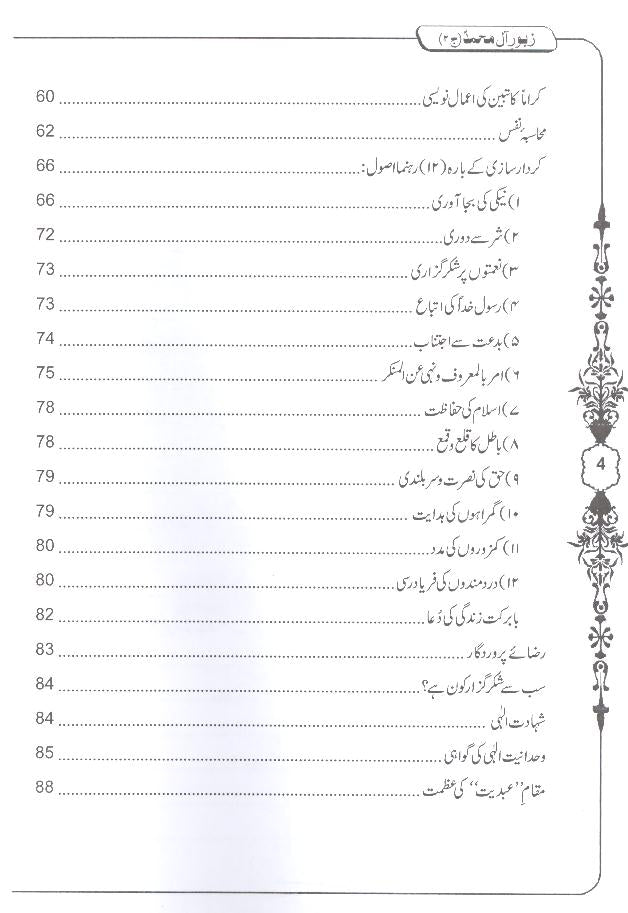 زبور آل محمدؐ (ج ۲)
کراماً کاتبین کی اعمال نویسی ........ 60
محاسبۂ نفس ........ 62
کردار سازی کے بارہ (۱۲) رہنما اصول: ........ 66
۱) نیکی کی بجا آوری ........ 66
۲) شر سے دوری ........ 72
۳) نعمتوں پر شکر گزاری ........ 73
۴) رسول خداؐ کی اتباع ........ 73
۵) بدعت سے اجتناب ........ 74
۶) امر بالمعروف و نہی عن المنکر ........ 75
۷) اسلام کی حفاظت ........ 78
۸) باطل کا قلع و قمع ........ 78
۹) حق کی نصرت و سر بلندی ........ 79
۱۰) گمراہوں کی ہدایت ........ 79
۱۱) کمزوروں کی مدد ........ 80
۱۲) دردمندوں کی فریاد رسی ........ 80
بابرکت زندگی کی دُعا ........ 82
رضائے پروردگار ........ 83
سب سے شکر گزار کون ہے؟ ........ 84
شہادت الٰہی ........ 84
وحدانیت الٰہی کی گواہی ........ 85
مقامِ ”عبدیت“ کی عظمت ........ 88
4